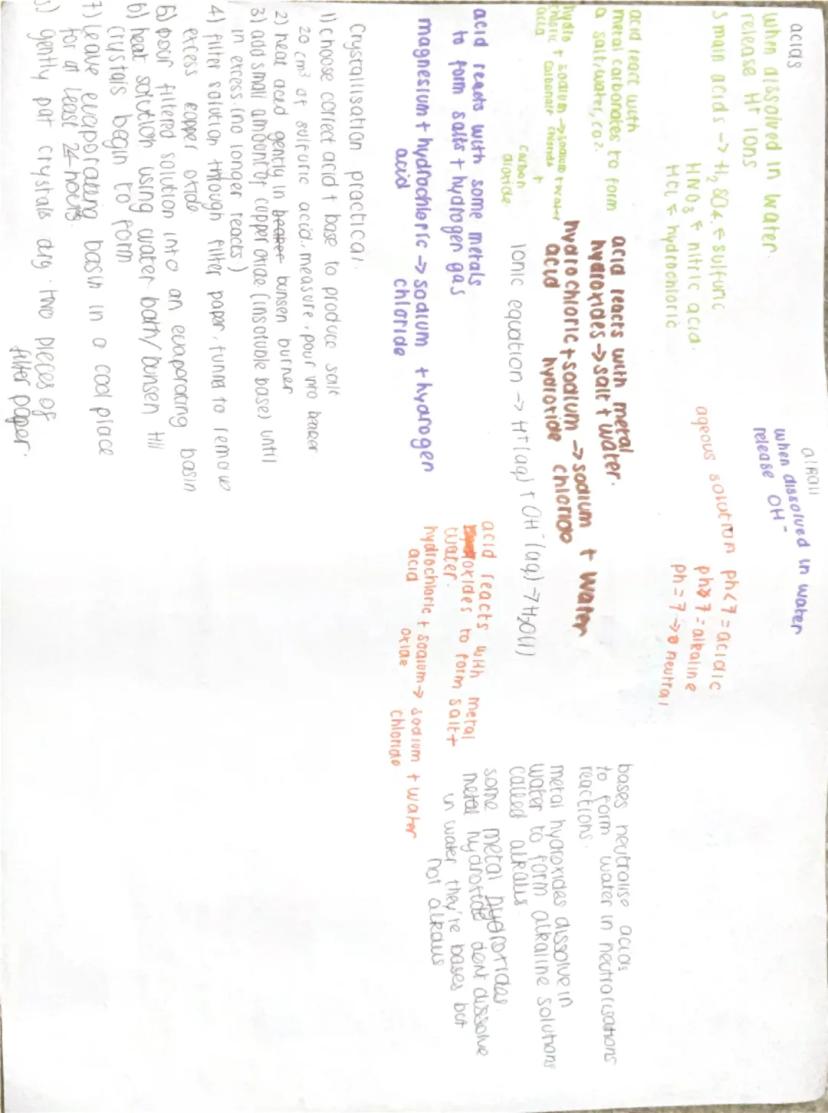 acids
when dissolved in water
release H+ ions
3 main acids → H2SO4 ← sulfuric
HNO3 ← nitric acid.
HCl ← hydrochloric
alkali
when dissolved in water
release OH-
aqeous solution ph<7 = acidic
ph>7 = alkaline
ph = 7 → neutral
acid react with
metal carbonates to form
a salt, water, CO2.
hydro
chloric + sodium → sodium + water
acid carbonate chloride +
carbon
dioxide
acid reacts with metal
hydroxides → salt + water.
hydrochloric + sodium → sodium + water
acid hydroxide chloride
Ionic equation → H+(aq) + OH-(aq) → H2O(l)
bases neutralise acids
to form water in neutralisations
reactions.
metal hydroxides dissolve in
water to form alkaline solutions
called alkalis.
some metal hydroxides
metal hydroxide dont dissolve
in water they're bases but
not alkalis
acid reacts with some metals
to form salts + hydrogen gas
magnesium + hydrochloric → sodium + hydrogen
acid chloride
acid reacts with metal
oxides to form salt +
water.
hydrochloric + sodium → sodium + water
acid oxide chloride
Crystallisation practical.
1) choose correct acid + base to produce salt
20 cm3 of sulfuric acid. measure, pour into beaker
2) heat acid gently in beaker bunsen burner
3) add small amount of copper oxide (insoluble base) until
in excess. (no longer reacts)
4) filter solution through filter paper, funnel to remove
excess copper oxide
5) pour filtered solution into an evaporating basin
6) heat solution using water bath/bunsen till
crystals begin to form
7) Leave evaporating basin in a cool place
for at least 24 hours.
gently pat crystals dry. two pieces of
filter paper.